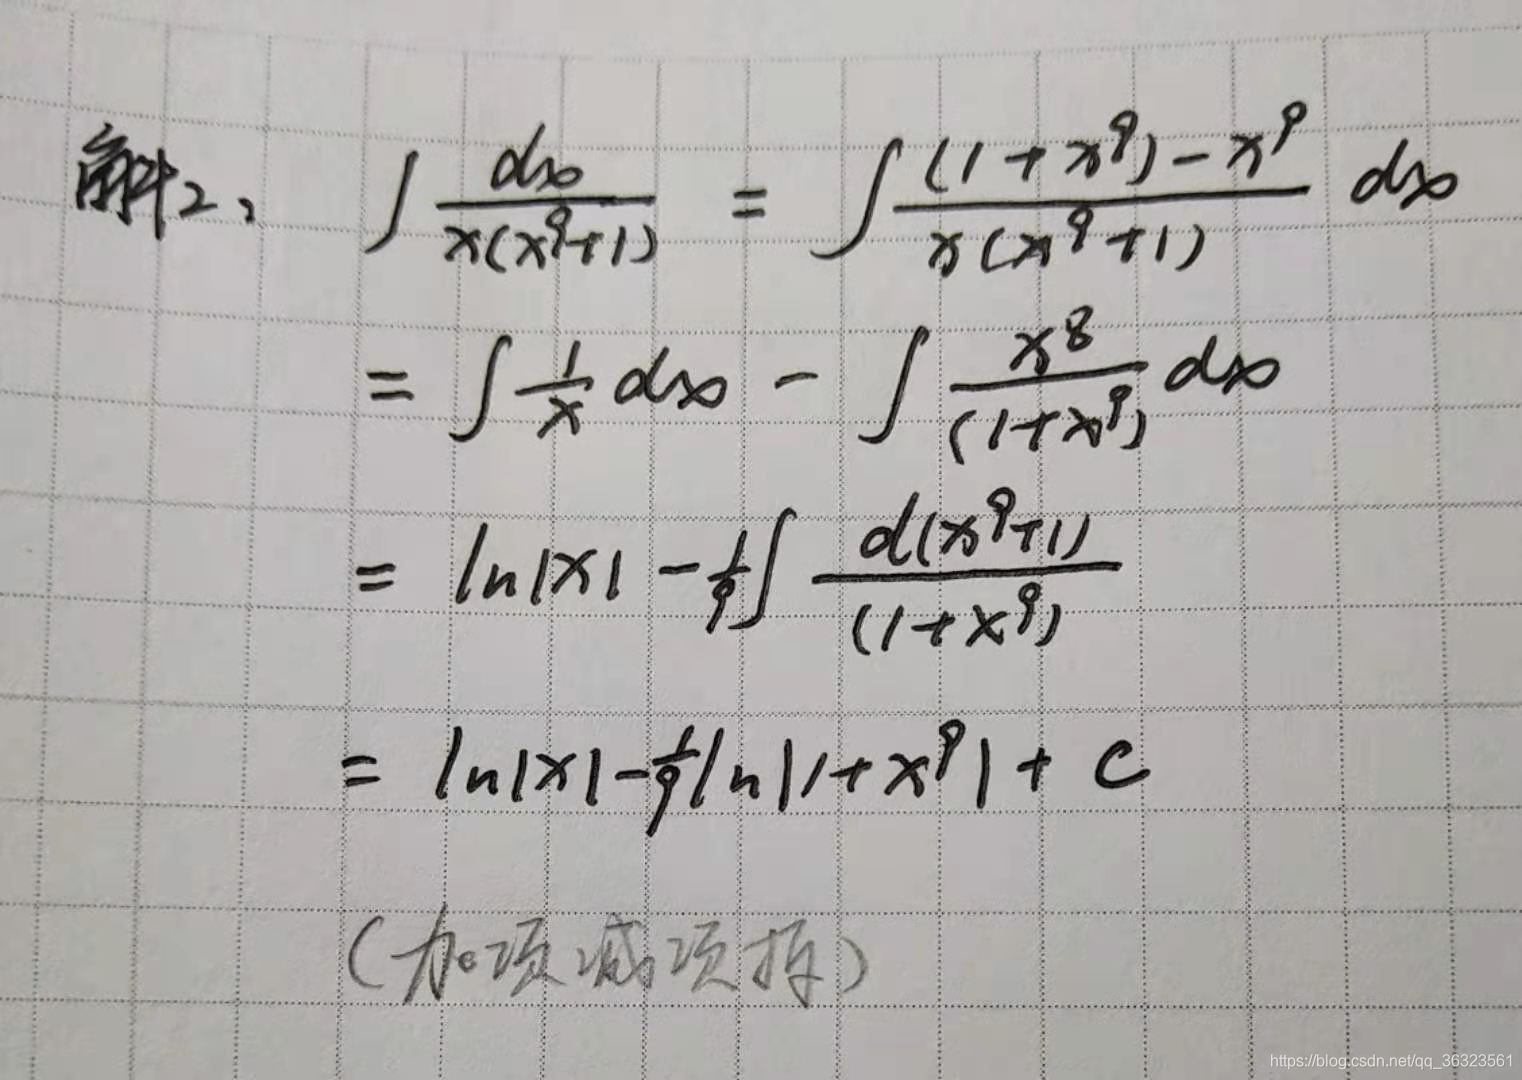 解2、 ∫ dx / x(x⁹+1) = ∫ (1+x⁹)-x⁹ / x(x⁹+1) dx
= ∫ 1/x dx - ∫ x⁸ / (1+x⁹) dx
= ln|x| - 1/9 ∫ d(x⁹+1) / (1+x⁹)
= ln|x| - 1/9 ln|1+x⁹| + C
(加项减项拆)
https://blog.csdn.net/qq_36323561